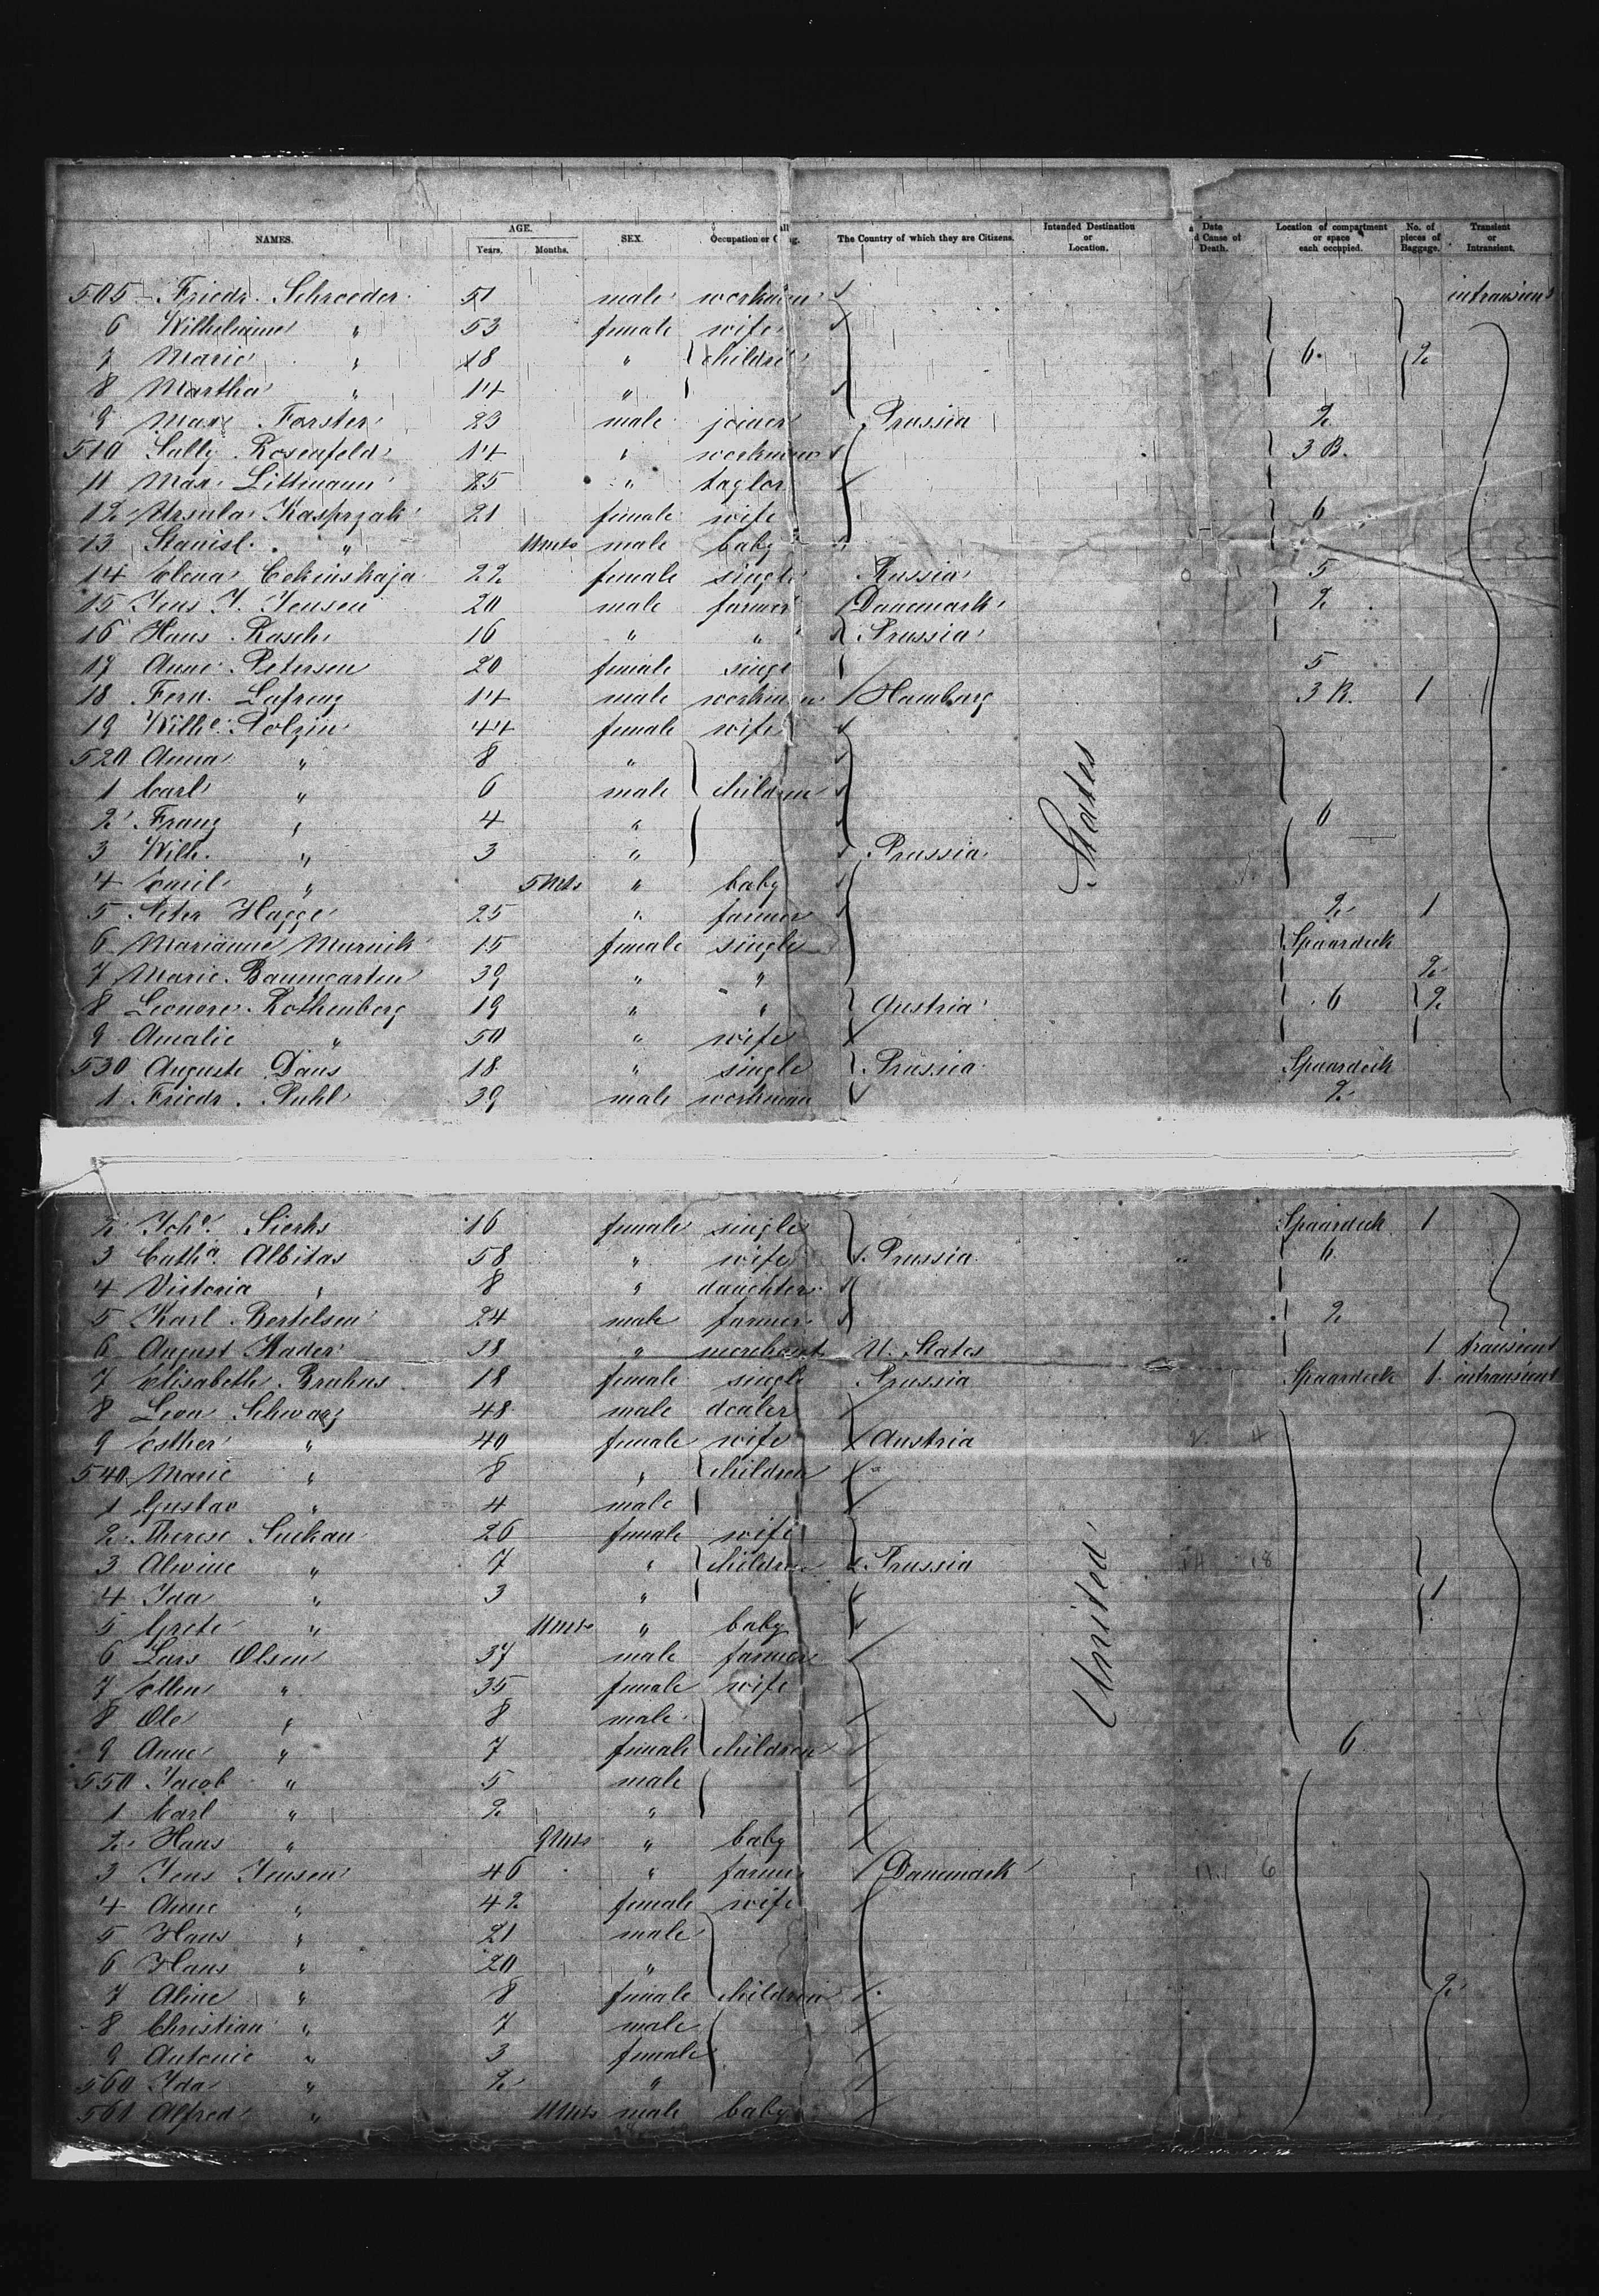 NAMES. AGE. Years. Months. SEX. Occupation or The Country of which they are Citizens. Intended Destination or Location. Date d Cause of Death. Location of compartment or space each occupied. No. of pieces of Baggage. Transient or Intransient.
505 Friedr. Schroeder 51 male workman intransient
6 Wilhelmine " 53 female wife
7 Marie " 18 " children 6. 2
8 Martha " 14 "
9 Max Forster 23 male joiner Prussia 2
510 Sally Rosenfeld 14 " workman 3 B.
11 Max Littmann 25 " taylor
12 Ursula Kasprzak 21 female wife 6
13 Stanisl. " 11 mts male baby
14 Elena Cekinskaja 22 female single Russia 5
15 Jens J. Jensen 20 male farmer Danemark 2
16 Hans Rasch 16 " " Prussia
17 Anne Petersen 20 female singl 5
18 Ferd. Lafrenz 14 male workman Hamburg 3 B. 1
19 Wilhe. Polzin 44 female wife
520 Anna " 8 "
1 Carl " 6 male children
2 Franz " 4 " 6
3 Wilh. " 3 " Prussia
4 Emil " 5 Mts " baby
5 Peter Hagge 25 " farmer 2 1
6 Marianne Murnik 15 female single Spaardeck
7 Marie Baumgarten 39 " " 2
8 Leonore Rothenberg 19 " " Austria 6 2
9 Amalie " 50 " wife
530 Auguste Daus 18 " single Prussia Spaardeck
1 Friedr. Puhl 39 male workman 2
States
2 Johe. Sierks 16 female single Spaardeck 1
3 Catha. Albitas 58 " wife Prussia 6
4 Victoria " 8 " daughter
5 Karl Bertelsen 24 male farmer 2
6 August Mader 38 " merchant U. States 1 transient
7 Elisabeth Bruhns 18 female single Prussia Spaardeck 1 intransient
8 Leon Schwarz 48 male dealer
9 Esther " 40 female wife Austria
540 Marie " 8 " children
1 Gustav " 4 male
2 Therese Suckau 26 female wife
3 Alwine " 7 " children Prussia
4 Ida " 3 " 1
5 Grete " 11 mts " baby
6 Lars Olsen 37 male farmer
7 Ellen " 35 female wife
8 Ole " 8 male
9 Anne " 7 female children 6
550 Jacob " 5 male
1 Carl " 2 "
2 Hans " 9 Mts " baby
3 Jens Jensen 46 " farmer Danemark
4 Anne " 42 female wife
5 Hans " 21 male
6 Hans " 20 "
7 Aline " 8 female children 2
8 Christian " 7 male
9 Antonie " 3 female
560 Ida " 2 "
561 Alfred " 11 Mts male baby
United